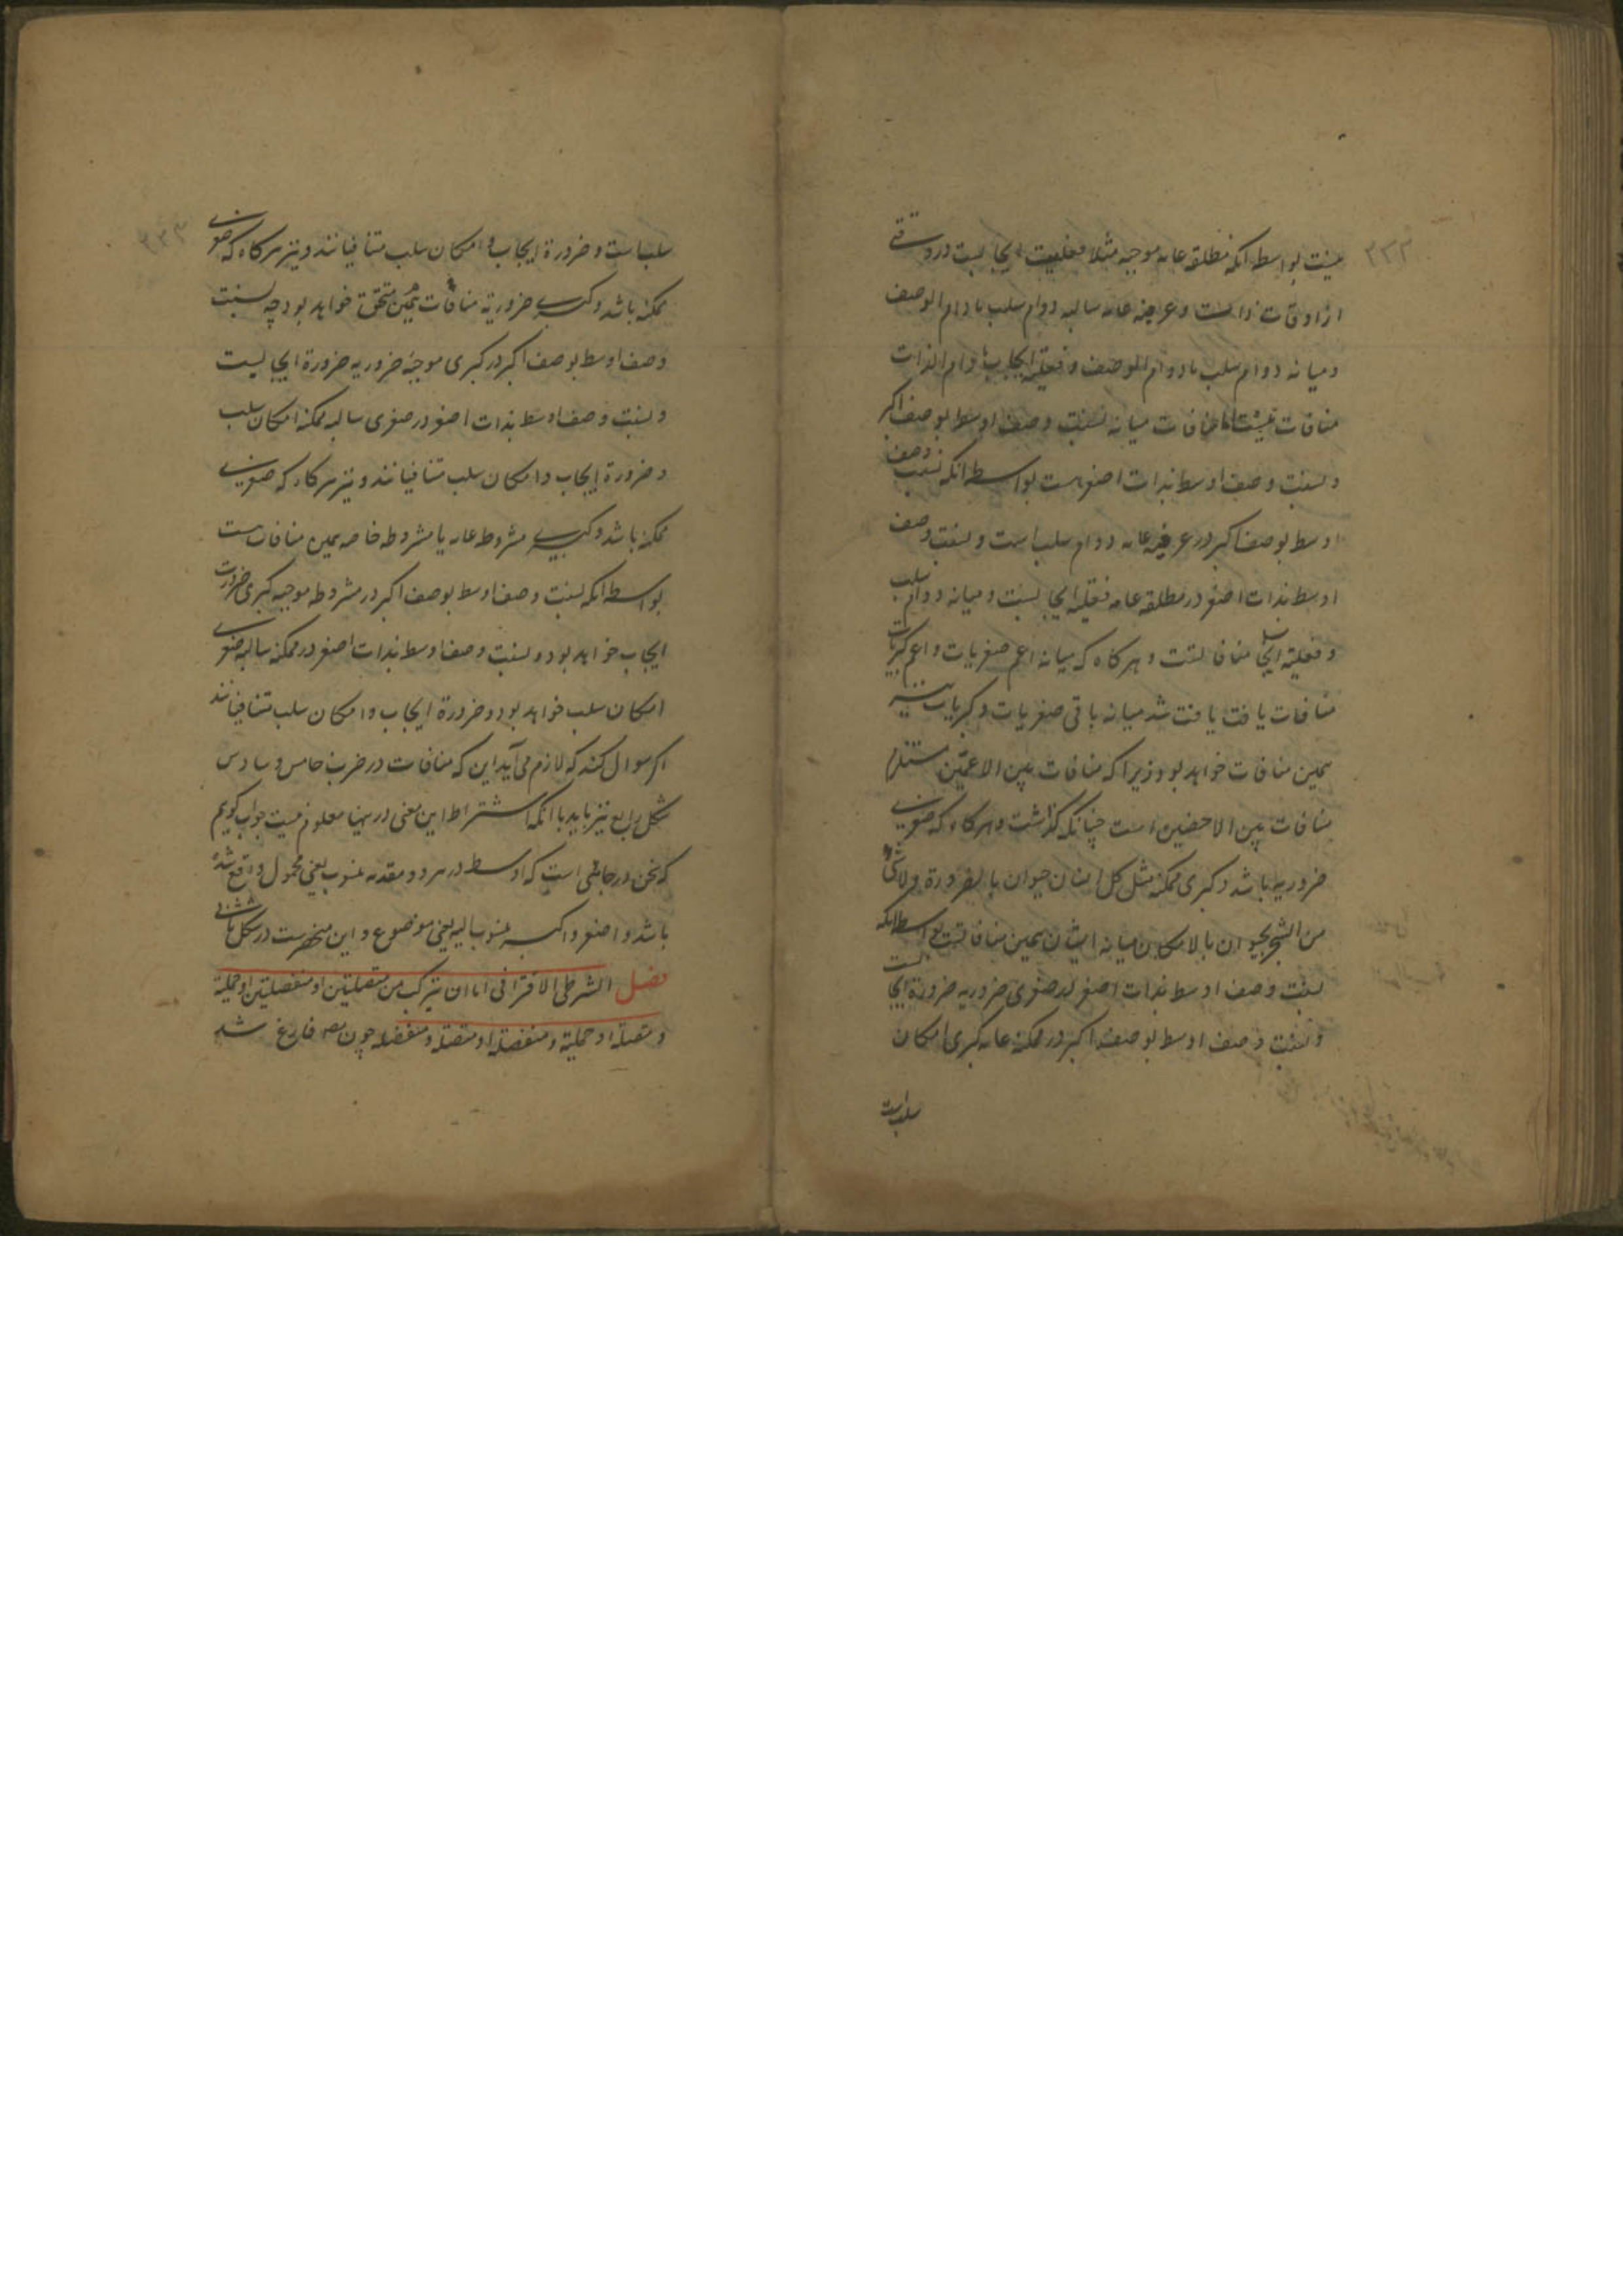 ۳۳۲
نیست بواسطه انکه مطلقه عامه موجبه مثلا فعلیت ایجابست در وقتی
از اوقات ذاتست و عرفیه عامه سالبه دوام سلب مادام الوصف
و میانه دوام سلب مادوام الوصف و فعلیة ایجاب مادام الذات
منافات نیست اما منافات میانه نسبت وصف اوسط بوصف اکبر
و نسبت وصف اوسط بذات اصغر هست بواسطه انکه نسبت وصف
اوسط بوصف اکبر در عرفیه عامه دوام سلب است و نسبت وصف
اوسط بذات اصغر در مطلقه عامه فعلیة ایجابست و میانه دوام سلب
و فعلیة ایجاب منافاتست و هرکاه که میانه اعم صغریات و اعم کبریات
منافات یافت یافت شد میانه باقی صغریات و کبریات نیز
همین منافات خواهد بود زیرا که منافات بین الاعمین مستلزم
منافات بین الاخصین است چنانکه گذشت و هرکاه که صغری
ضروریه باشد و کبری ممکنه مثل کل انسان حیوان بالضرورة و لا شی
من الشجر بحیوان بالامکان میانه ایشان همین منافاتست بواسطه انکه
نسبت وصف اوسط بذات اصغر در صغری ضروریه ضرورة ایجابست
و نسبت وصف اوسط بوصف اکبر در ممکنه عامه کبری امکان
سلب است
۳۳۳
سلب است و ضرورة ایجاب و امکان سلب متنافیانند و نیز هرکاه که صغری
ممکنه باشد و کبری ضروریه منافات همین متحقق خواهد بود چه نسبت
وصف اوسط بوصف اکبر در کبری موجبه ضروریه ضرورة ایجابیست
و نسبت وصف اوسط بذات اصغر در صغری سالبه ممکنه امکان سلب
و ضرورة ایجاب و امکان سلب متنافیانند و نیز هرکاه که صغری
ممکنه باشد و کبری مشروطه عامه یا مشروطه خاصه همین منافات هست
بواسطه انکه نسبت وصف اوسط بوصف اکبر در مشروطه موجبه کبری ضرورت
ایجاب خواهد بود و نسبت وصف اوسط بذات اصغر در ممکنه سالبه صغری
امکان سلب خواهد بود و ضرورة ایجاب و امکان سلب متنافیانند
اکر سوال کنند که لازم می آید این که منافات در ضرب خامس و سادس
شکل رابع نیز باید با انکه اشتراط این معنی در اینها معلوم نیست جواب کویم
که سخن در جائی است که اوسط در هر دو مقدمه منسوب یعنی محمول واقع شده
باشد و اصغر و اکبر منسوب الیه یعنی موضوع و این منحصرست در شکل ثانی
فصل الشرطی الاقترانی اما ان یترکب من متصلتین او منفصلتین او حملیة
و متصلة او حملیة و منفصلة او متصلة و منفصلة چون مص فارغ شد